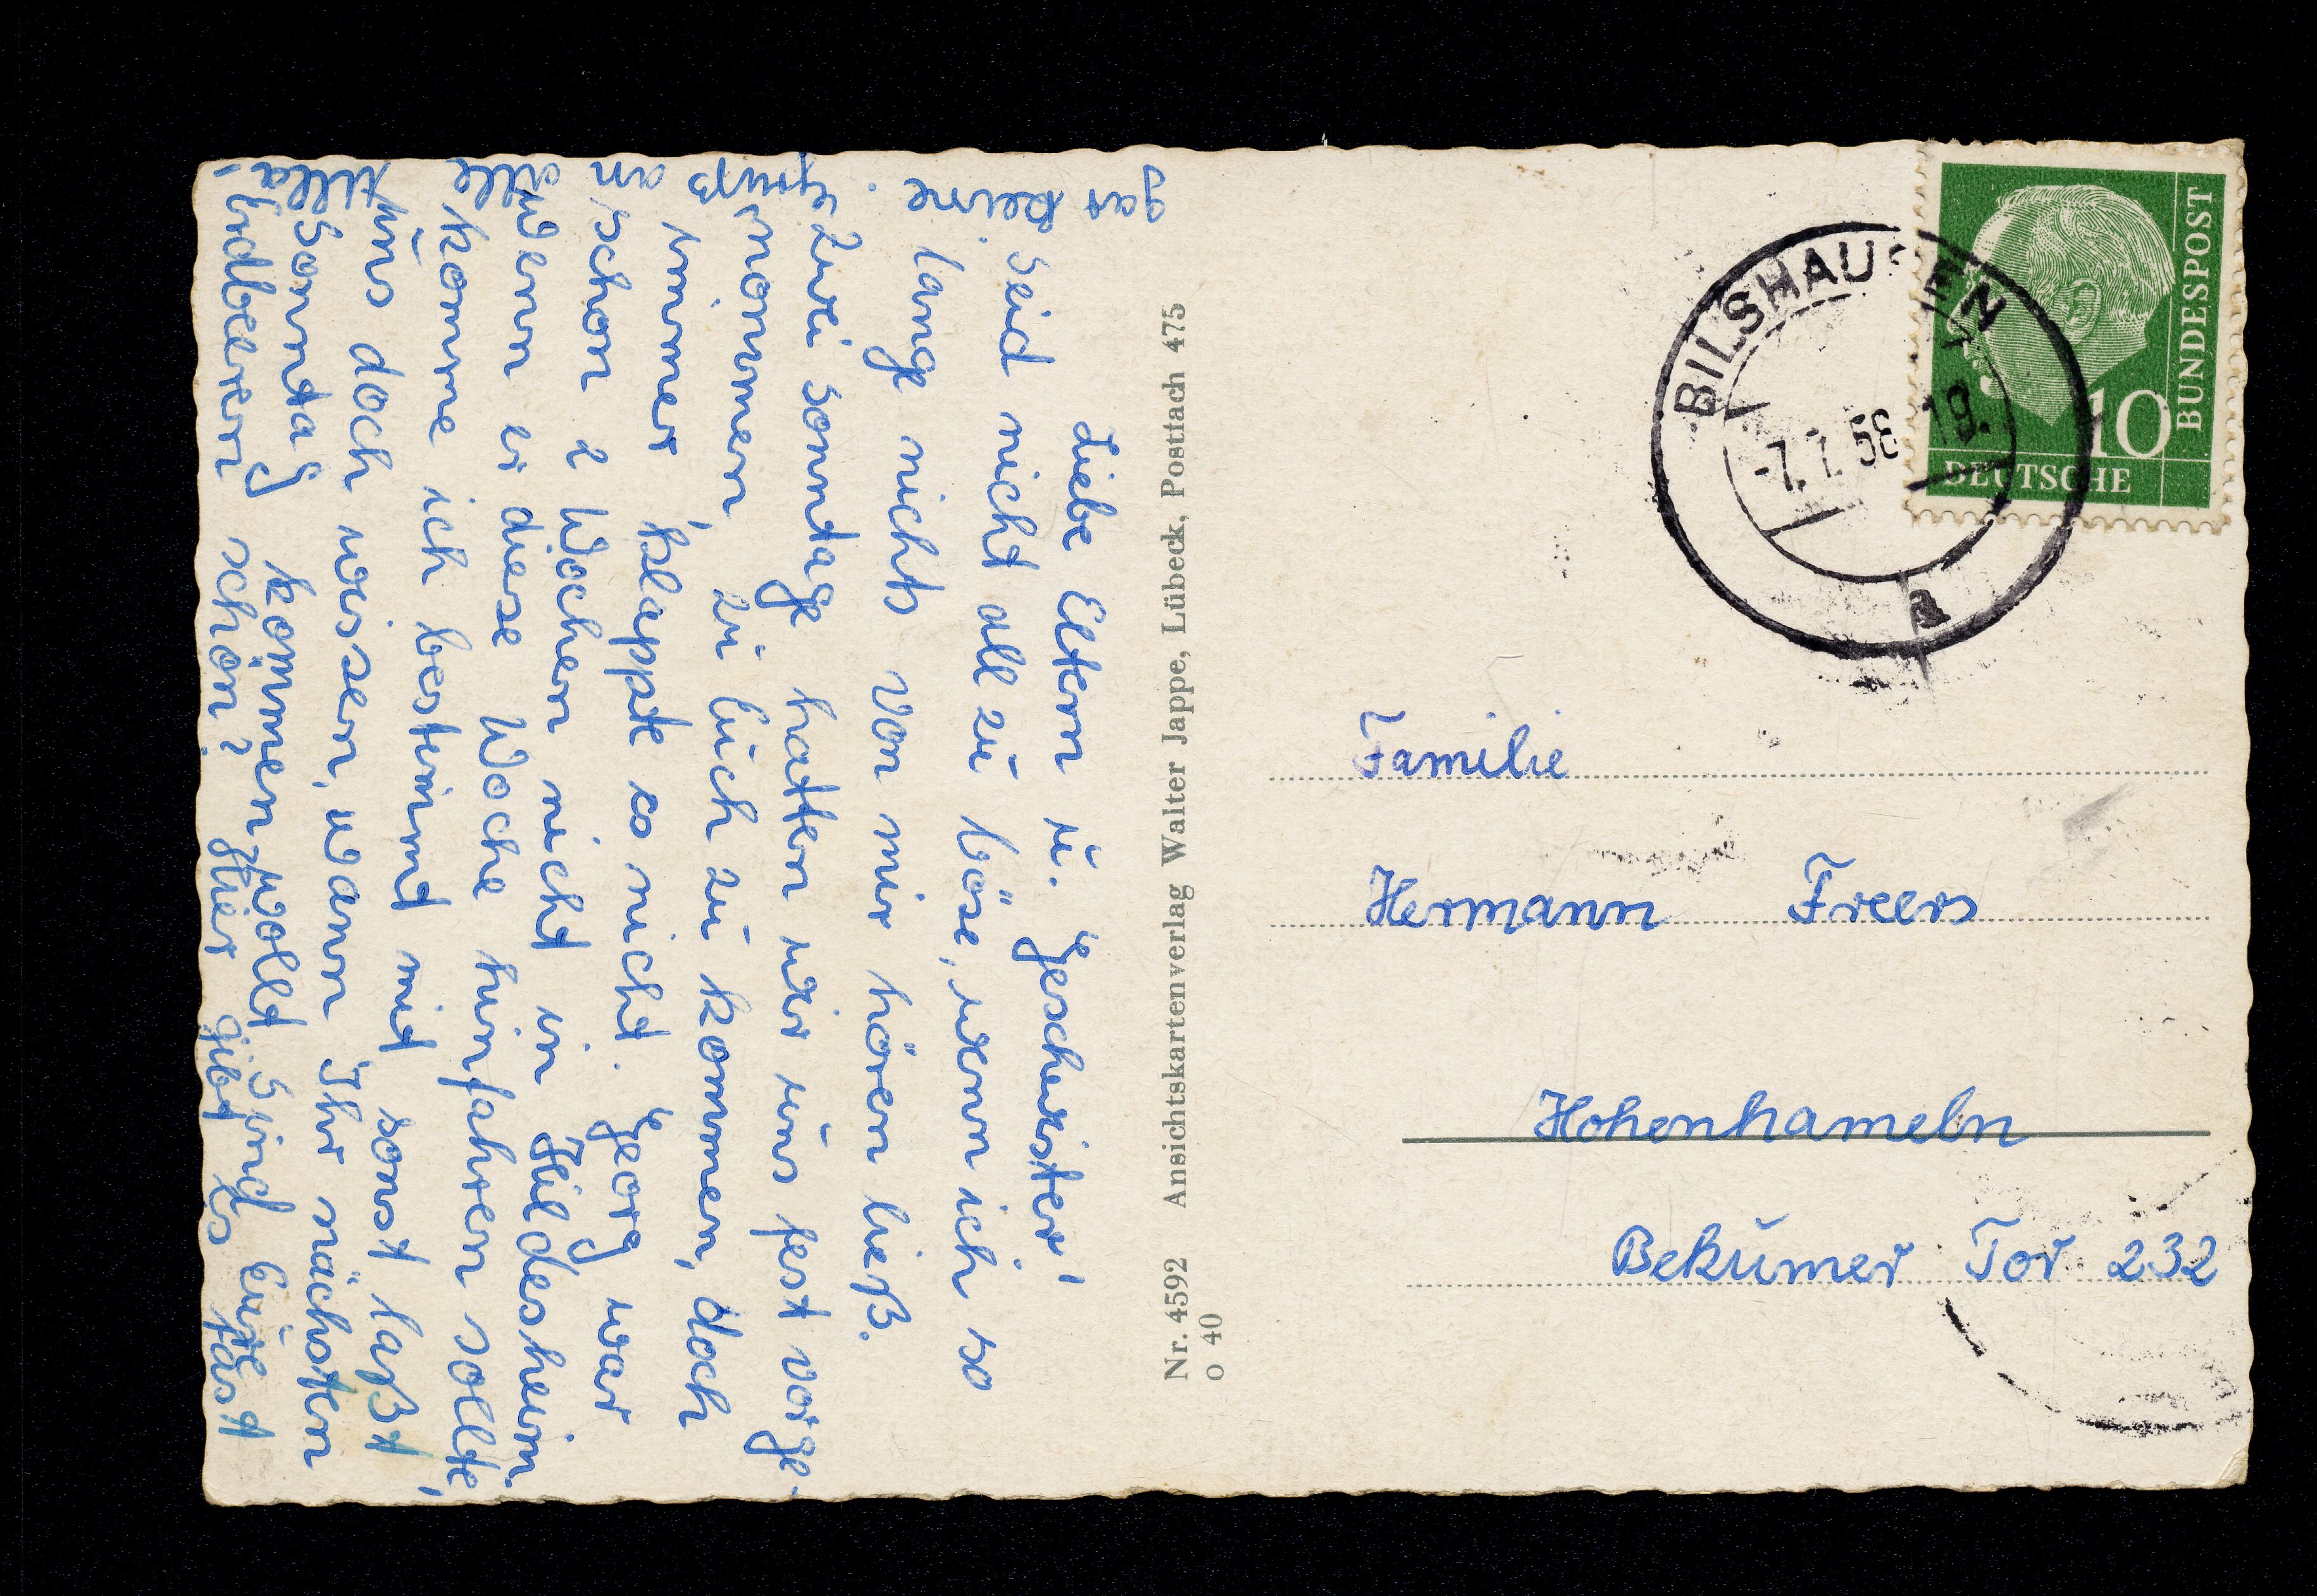 Liebe Eltern u. Geschwister!
Seid nicht all zu böse, wenn ich so
lange nichts von mir hören ließ.
Zwei Sonntage hatten wir uns fest vorge-
nommen, zu Euch zu kommen, doch
immer klappte es nicht. Georg war
schon 2 Wochen nicht in Hildesheim.
Wenn er diese Woche hinfahren sollte,
komme ich bestimmt mit, sonst laßt
uns doch wissen, wann Ihr nächsten
Sonntag kommen wollt. Sind Eure
Erdbeeren schon? Hier gibt es fast
gar keine.
Gruß an alle
Nr. 4592 Ansichtskartenverlag Walter Jappe, Lübeck, Postfach 475
o 40
BILSHAUSEN
-7.7.58-19
a
10
DEUTSCHE
BUNDESPOST
Familie
Hermann Freers
Hohenhameln
Bekumer Tor 232